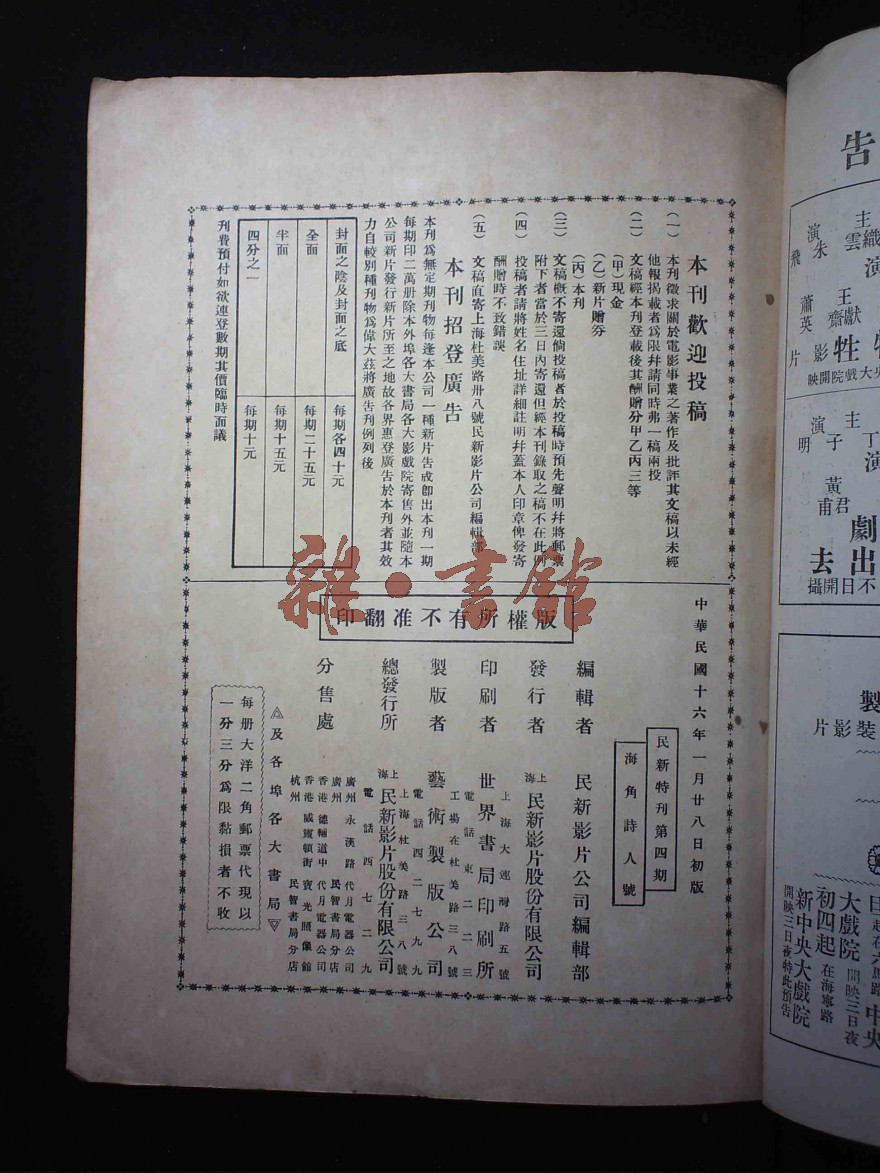 本刊歡迎投稿
(一) 本刊徵求關於電影事業之著作及批評其文稿以未經
他報揭載者爲限幷請同時弗一稿兩投
(二) 文稿經本刊登載後其酬贈分甲乙丙三等
(甲)現金
(乙)新片贈券
(丙)本刊
(三) 文稿槪不寄還倘投稿者於投稿時預先聲明幷將郵票
附下者當於三日內寄還但經本刊錄取之稿不在此例
(四) 投稿者請將姓名住址詳細註明幷蓋本人印章俾發寄
酬贈時不致錯誤
(五) 文稿直寄上海杜美路卅八號民新影片公司編輯部
本刊招登廣告
本刊爲無定期刊物每逢本公司一種新片吿成卽出本刊一期
每期印二萬册除本外埠各大書局各大影戲院寄售外並隨本
公司新片發行新片所至之地故各界惠登廣告於本刊者其效
力自較別種刊物爲偉大茲將廣告刊例列後
封面之陰及封面之底 每期各四十元
全面 每期二十五元
半面 每期十五元
四分之一 每期十元
刊費預付如欲連登數期其價臨時面議
中華民國十六年一月廿八日初版
民新特刊第四期
海角詩人號
印翻准不有所權版
編輯者 民新影片公司編輯部
發行者 上海民新影片股份有限公司
上海大連灣路五號
印刷者 世界書局印刷所
電話東二二三
工場在杜美路三八號
製版者 藝術製版公司
電話四二七九九
上海杜美路三八號
總發行所 上海民新影片股份有限公司
電話西七二九
分售處
廣州永漢路代月電器公司
廣州 民智書局分店
香港德輔道中代月電器公司
香港威靈頓街寶光照像館
杭州 民智書局分店
及各埠各大書局
每册大洋二角郵票代現以
一分三分爲限黏損者不收
雜·書館
告
主演
朱飛
王獻齋
蕭英
犧牲
影片
映開院戲大央
主演
丁子明
黃君甫
劇
出去
攝開日不
製
片影裝
大戲院
開映三日夜
中央
初四起
在海寧路
新中央大戲院
開映三日夜特此預告